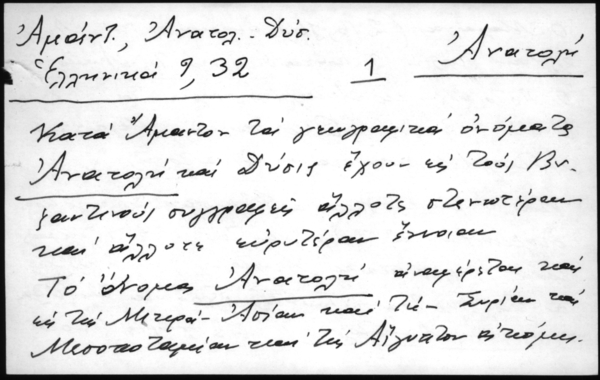 Ἀμάντ., Ἀνατολ. - Δύσ.
Ἑλληνικά 9, 32
1
Ἀνατολή
Κατά Ἄμαντον τά γεωγραφικά ὀνόματα
Ἀνατολή καί Δύσις ἔχουν εἰς τούς Βυ-
ζαντινούς συγγραφεῖς ἄλλοτε στενωτέραν
καί ἄλλοτε εὐρυτέραν ἔννοιαν
Τό ὄνομα Ἀνατολή ἀναφέρεται καί
εἰς τήν Μικρά- Ἀσίαν καί τή- Συρίαν καί
Μεσοποταμίαν καί τήν Αἴγυπτον ἀκόμη.